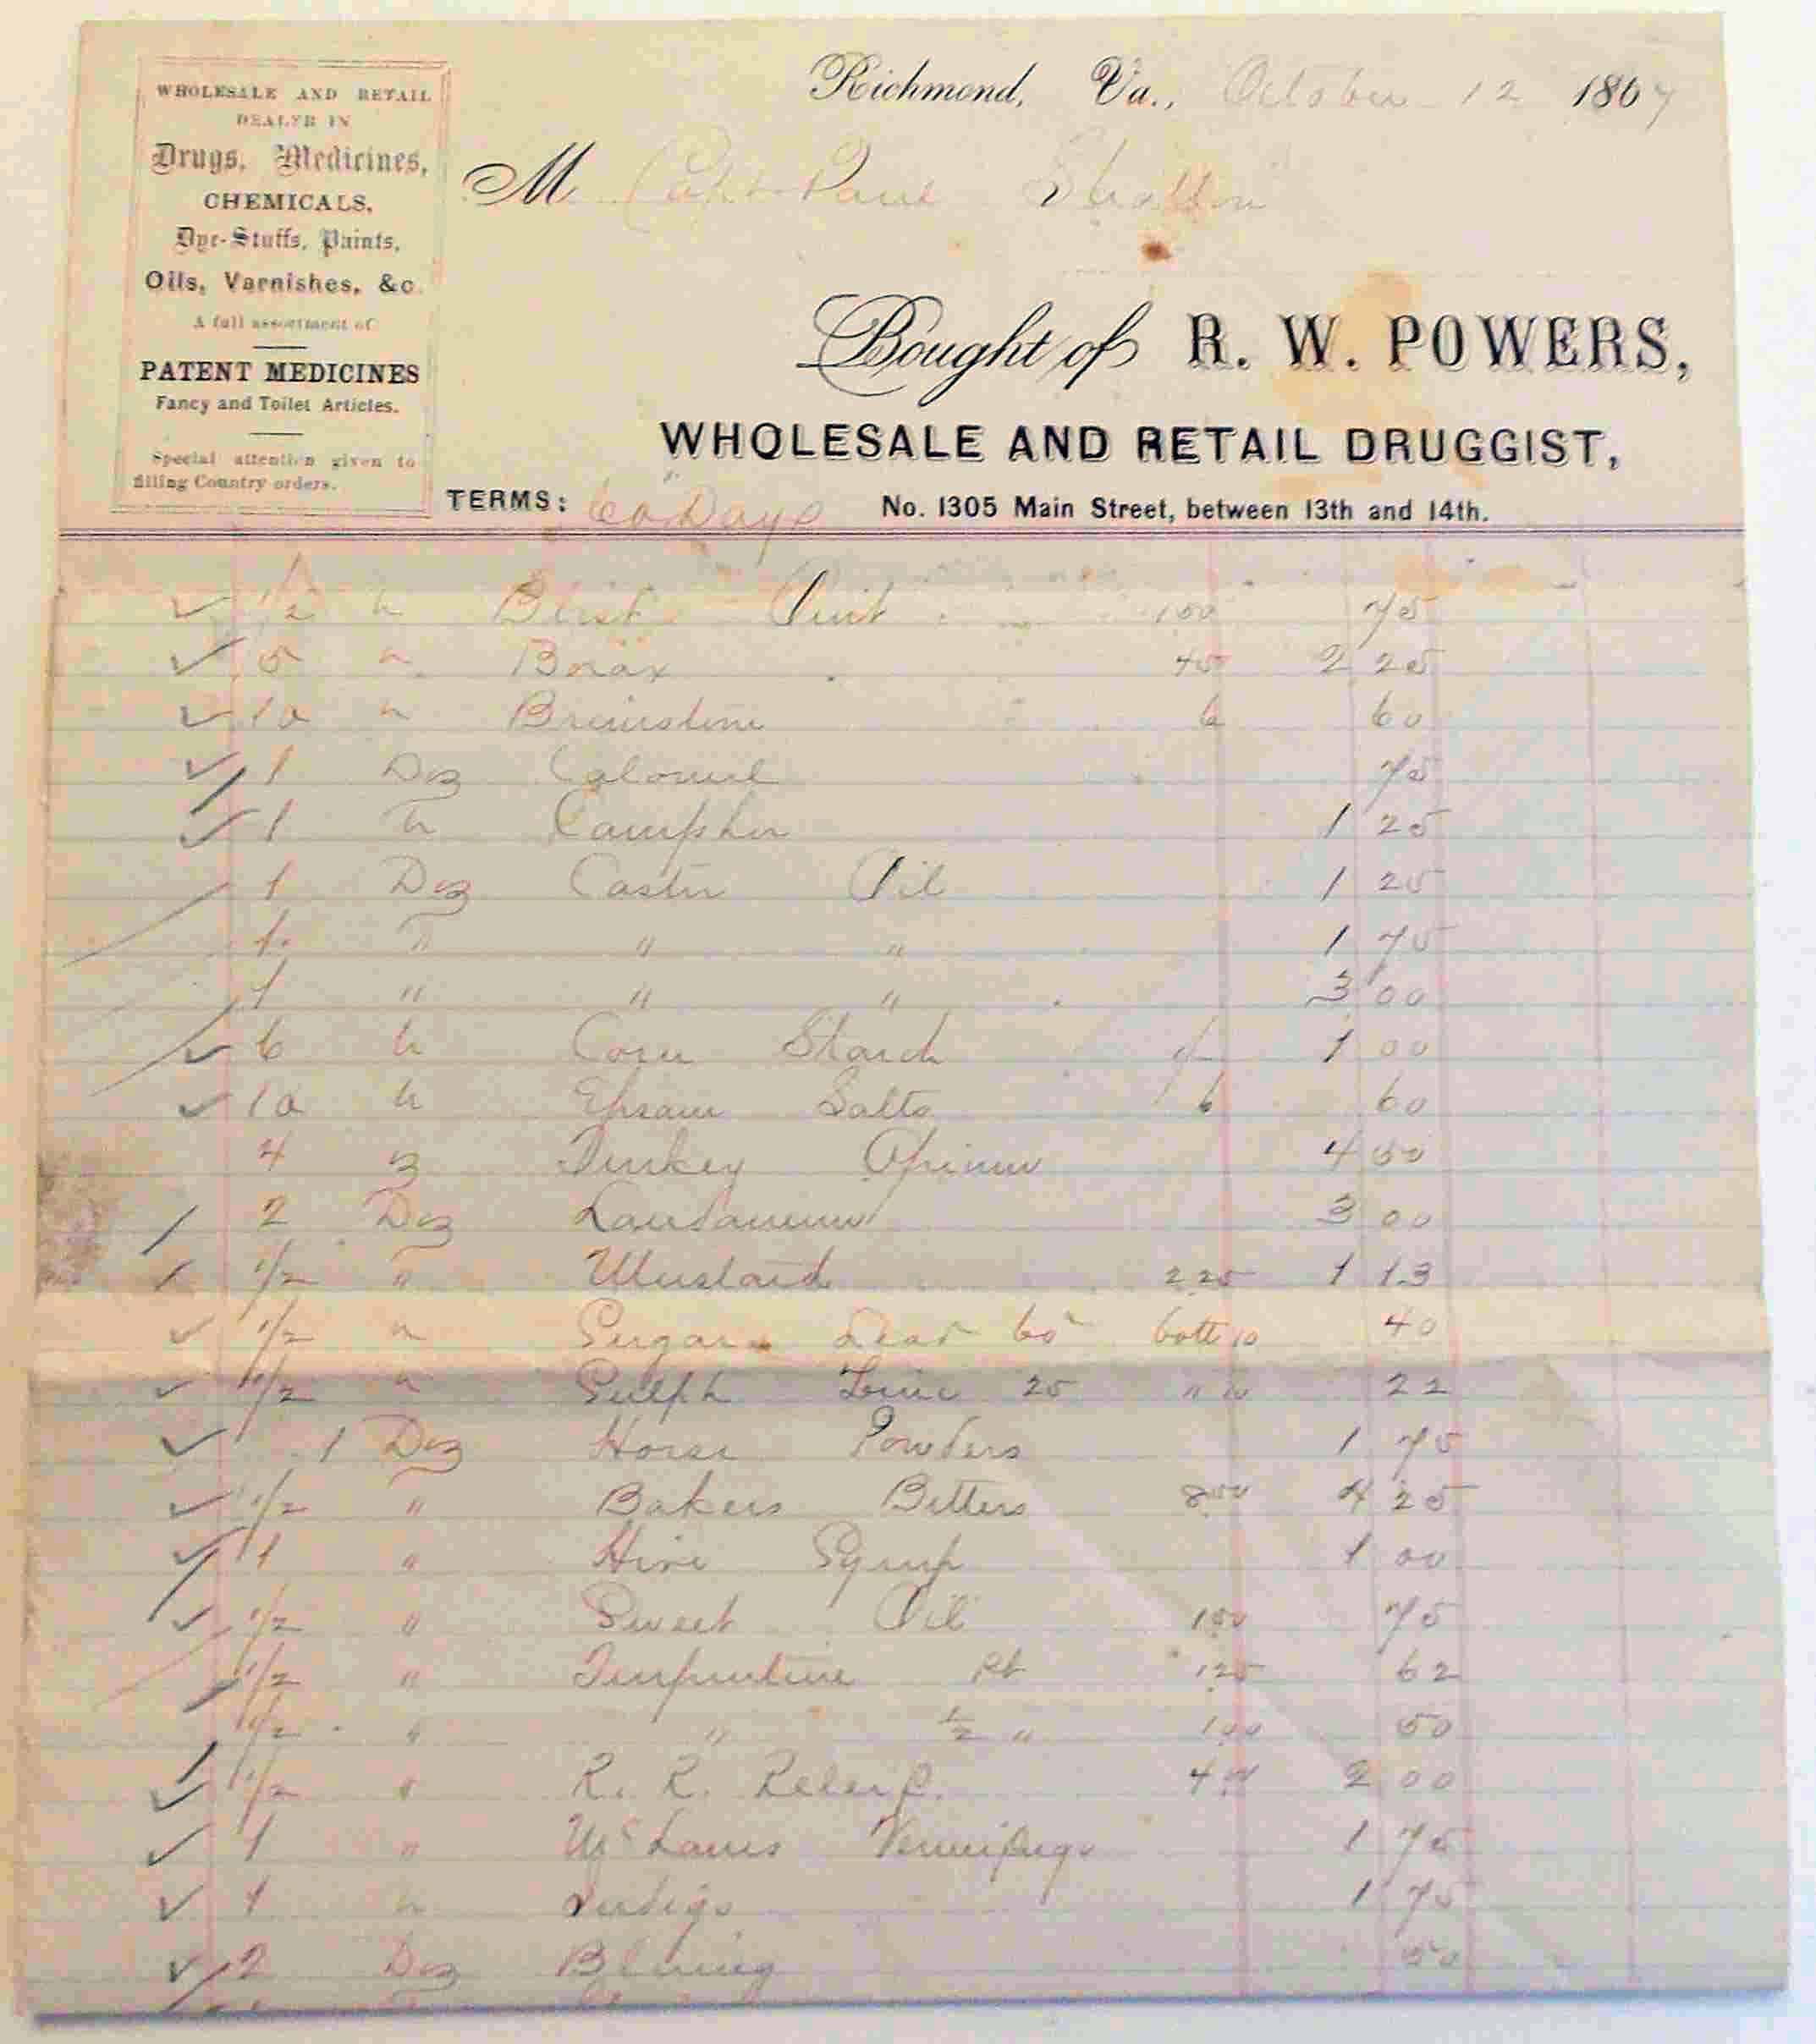 WHOLESALE AND RETAIL
DEALER IN
Drugs, Medicines,
CHEMICALS,
Dye-Stuffs, Paints,
Oils, Varnishes, &c.
A full assortment of
PATENT MEDICINES
Fancy and Toilet Articles.
Special attention given to
filling Country orders.
Richmond, Va., October 12 1867
M Capt Paul
Bought of R. W. POWERS,
WHOLESALE AND RETAIL DRUGGIST,
TERMS: 60 Days No. 1305 Main Street, between 13th and 14th.
1/2 " Blist Oint 150 75
5 " Borax 45 2 25
10 " Brimstone 6 60
1 Doz Calomel 75
1 " Camphor 1 25
1 Doz Castor Oil 1 25
1 " " " 1 75
1 " " " 3 00
6 " Corn Starch 1 00
10 " Epsom Salts 6 60
4 ʒ Turkey Opium 4 50
2 Doz Laudanum 3 00
1/2 " Mustard 225 1 13
1/2 " Sugar Lead 60 bott 10 40
1/2 " Sulph Zinc 25 " 10 22
1 Doz Horse Powders 1 75
1/2 " Bakers Bitters 850 4 25
1 " Hive Syrup 1 00
1/2 " Sweet Oil 150 75
1/2 " Turpentine Pt 125 62
1/2 " " 1/2 " 100 50
1/2 " R. R. Releif 2 00
1 " McLanes Vermifuge 1 75
1 " Indigo 1 75
2 Doz Bluing 50